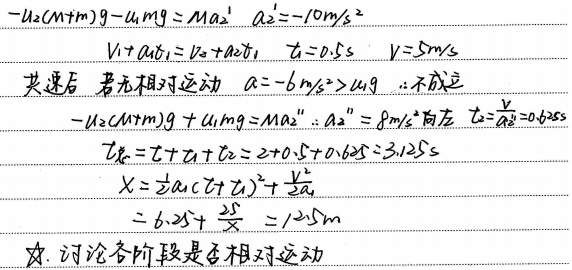 -u₂(M+m)g-u₁mg=Ma₂' a₂'=-10m/s²
V₁+a₁t₁=V₂+a₂t₁ t₁=0.5s V=5m/s
共速后 若无相对运动 a=-6m/s²>u₁g ∴不成立
-u₂(M+m)g+u₁mg=Ma₂'' ∴a₂''=8m/s²向左 t₂=V/a₂''=0.625s
t总=t+t₁+t₂=2+0.5+0.625=3.125s
X=½a₁(t+t₁)²+V²/2a₁
=6.25+25/x =12.5m
☆.讨论各阶段是否相对运动